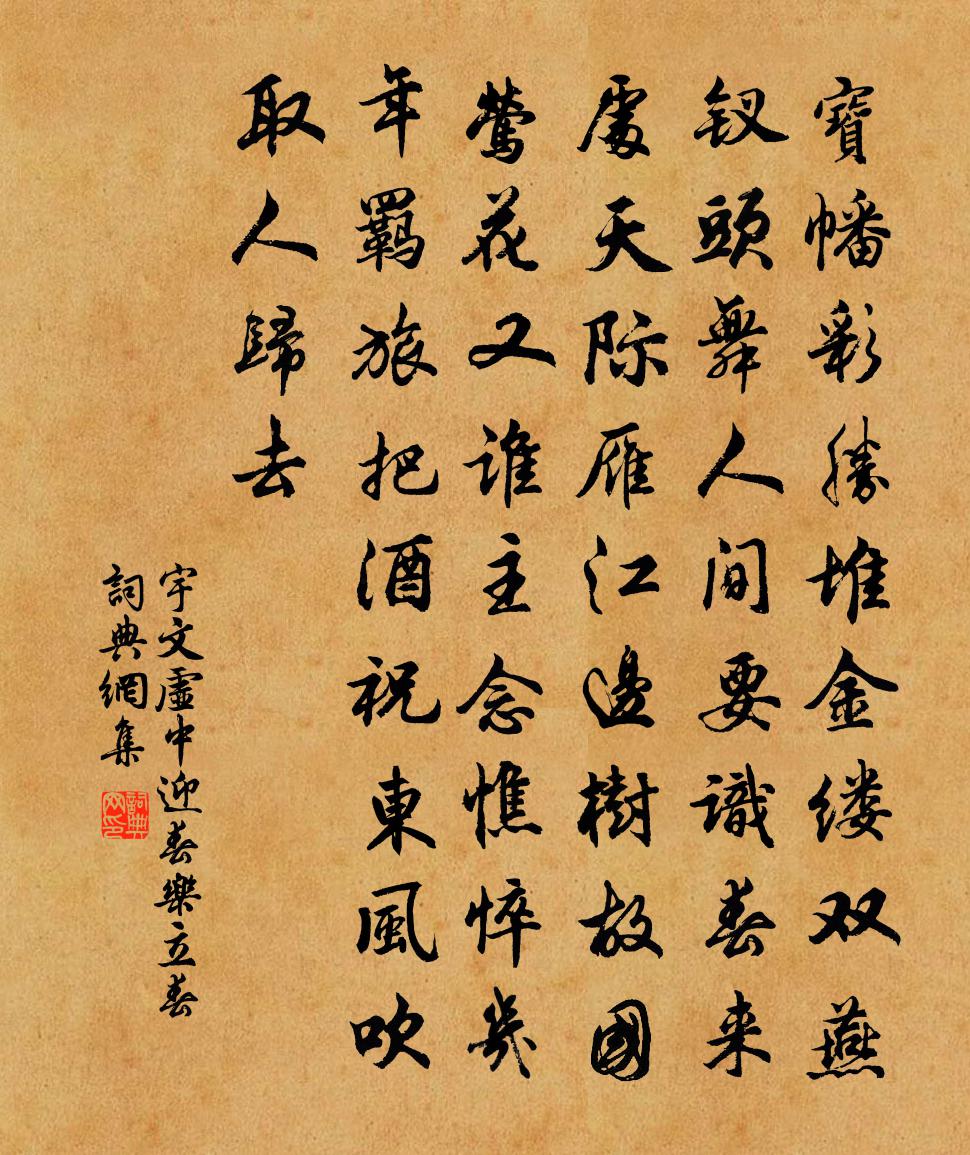 寶幡彩勝堆金缕双燕
釵頭舞人間要識春来
處天际雁江邊樹故國
鶯花又谁主念憔悴幾
年羁旅把酒祝東風吹
取人歸去
宇文虛中迎春樂立春
詞典網集
詞典网印